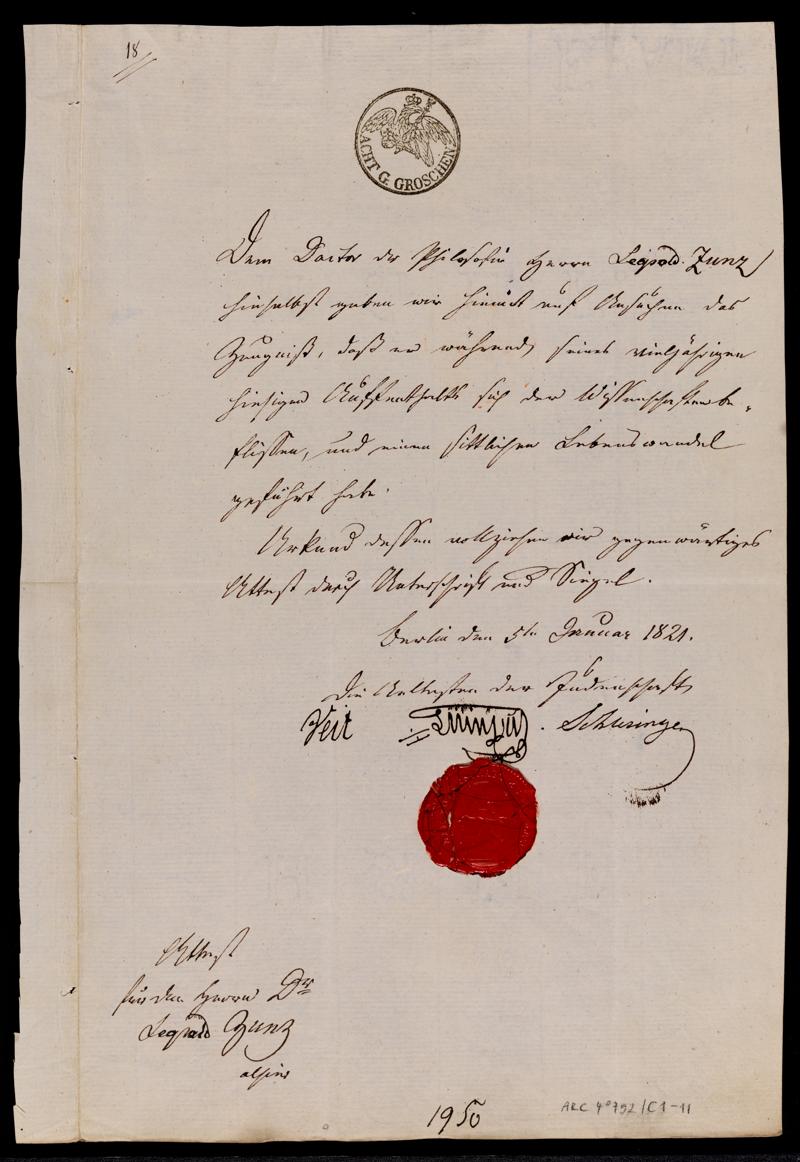 18
ACHT G. GROSCHEN
Dem Doctor der Philosofie Herrn Leopold Zunz
hieselbst geben wir hiemit auf Ansuchen das
Zeugniß, daß er während seines vieljährigen
hiesigen Auffenthalts sich der Wissenschaften be-
flissen, und einen sittlichen Lebenswandel
geführt habe.
Urkund dessen vollziehen wir gegenwärtiges
Attest durch Unterschrift und Siegel.
Berlin den 5ten Januar 1821.
Die Aeltesten der Judenschaft
Veit
Attest
für den Herrn Dr
Leopold Zunz
1950
ARC 4°792/C1-11